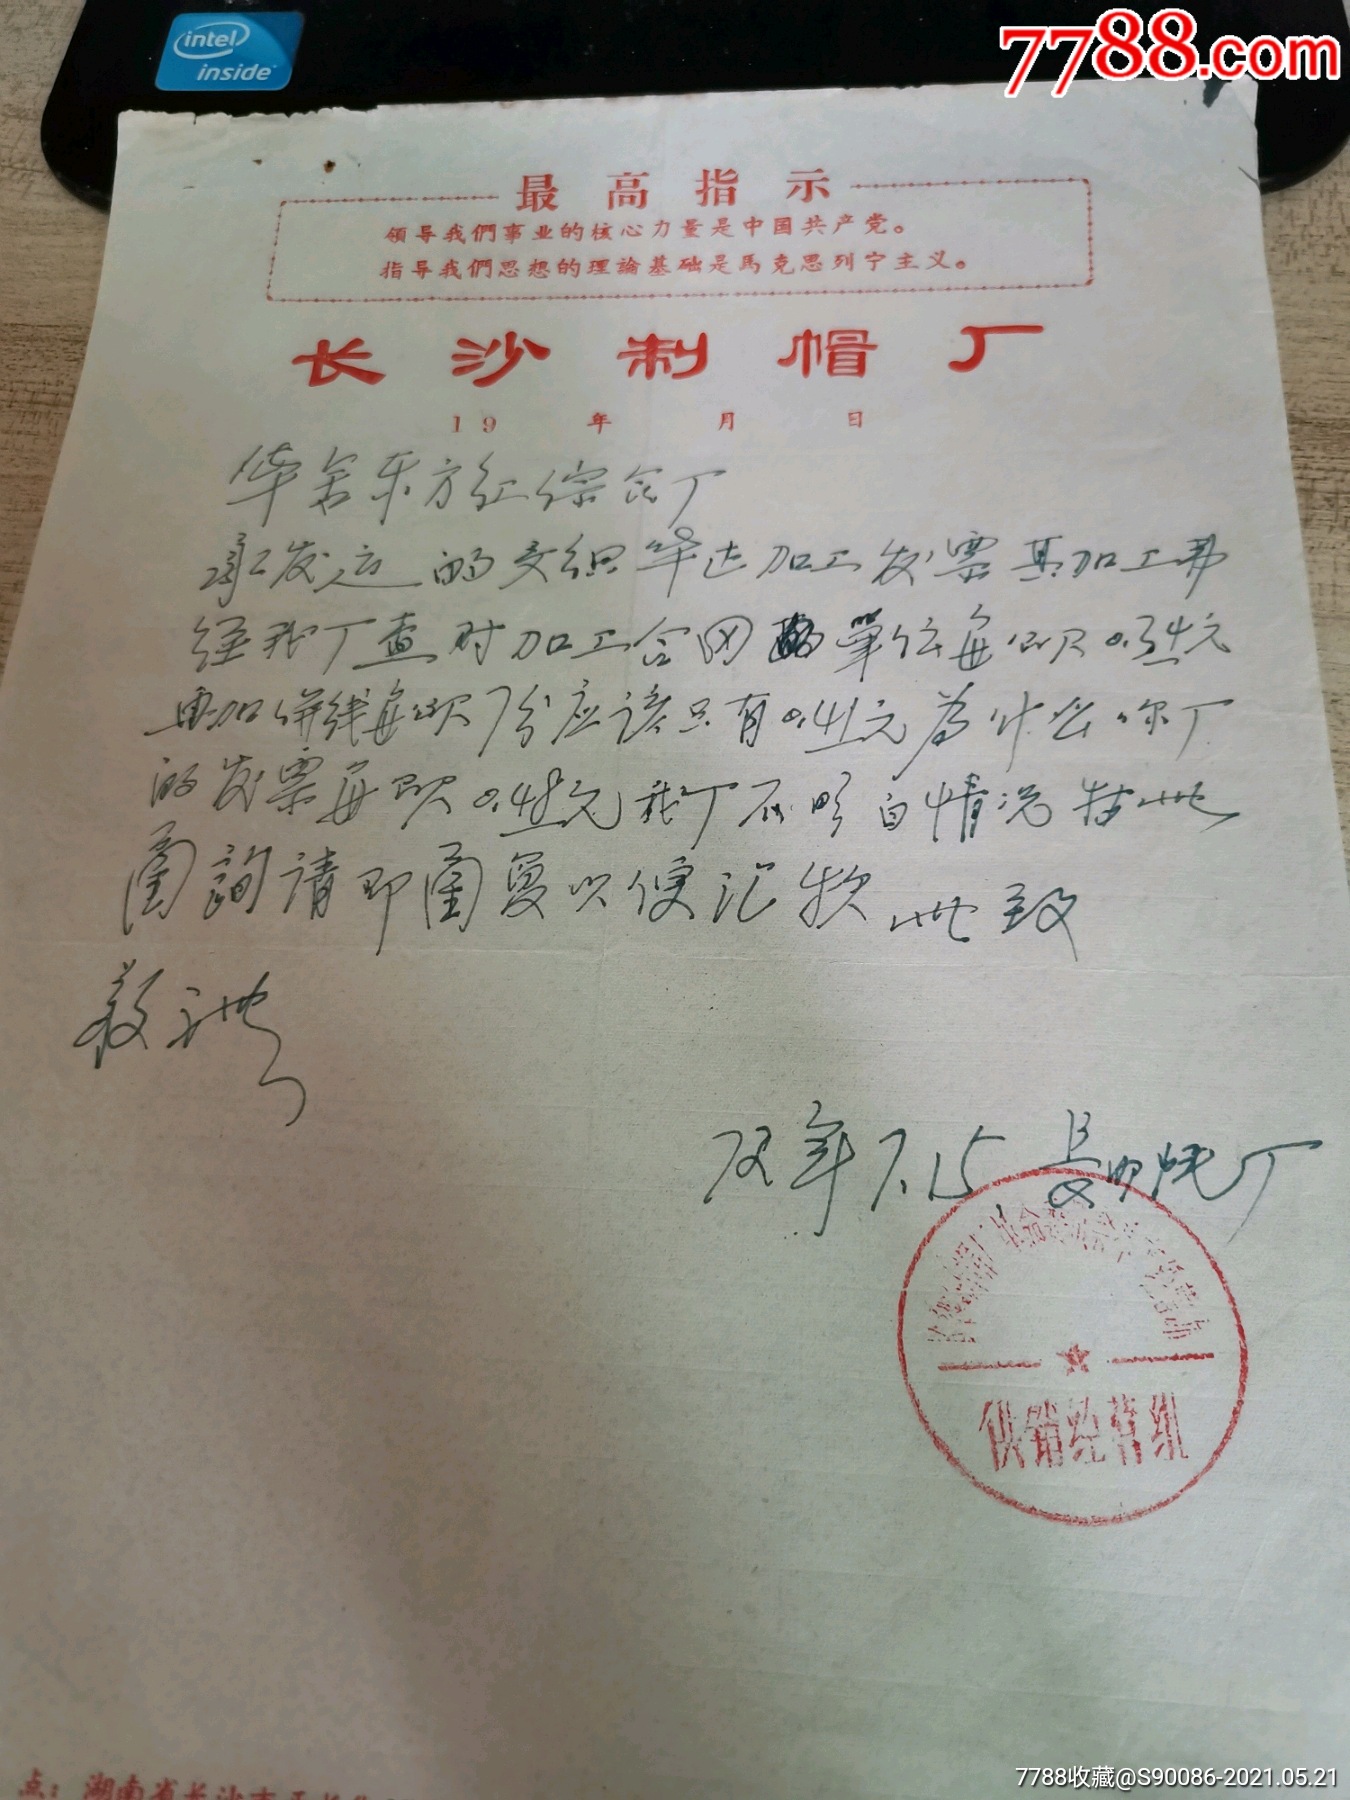 intel
inside
7788.com
最高指示
领导我們事业的核心力量是中国共产党。
指导我們思想的理論基础是馬克思列宁主义。
长沙制帽厂
19 年 月 日
华舍东方红综合厂
承发运的交织华达加工发票其加工费
经我厂查对加工合同的单位每公尺0.34元
再加併线每公尺7分应该只有0.41元为什么你厂
的发票每公尺0.48元我厂不明白情况特此
函詢请即函复以便汇款此致
敬礼
72年7.15 长沙帽厂
供销经营组
点：湖南省长沙市
7788收藏@S90086-2021.05.21